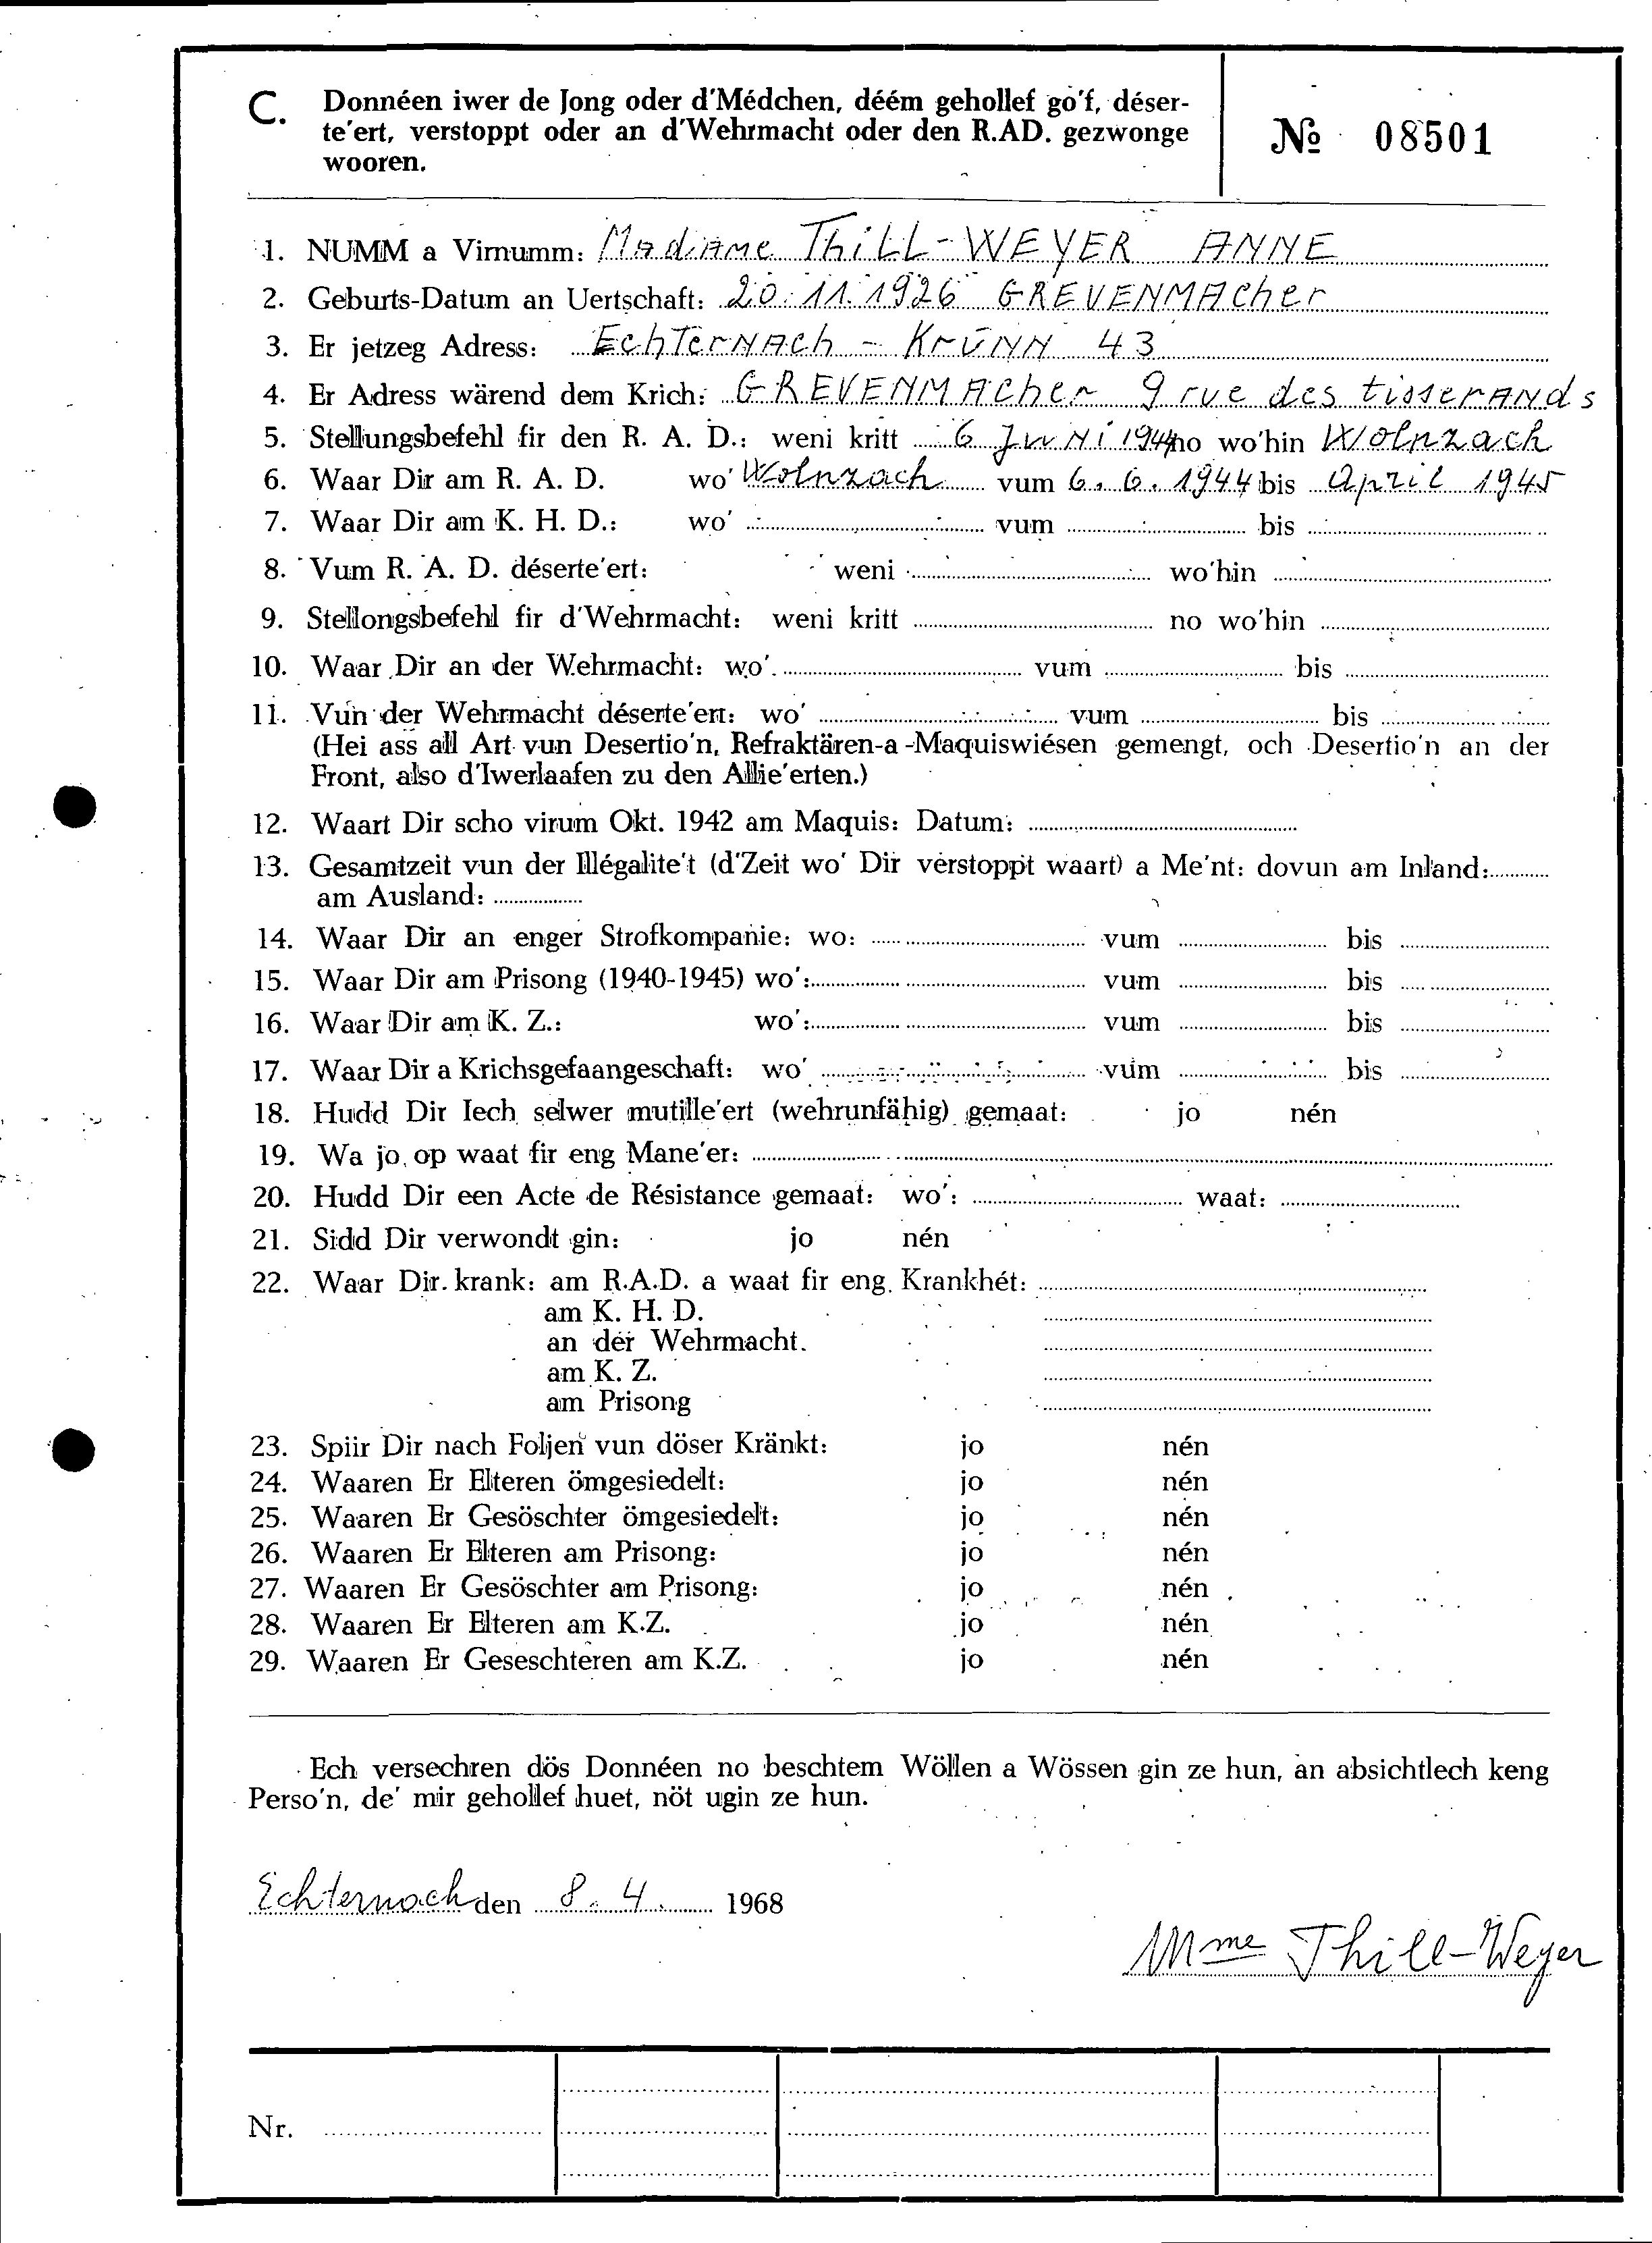 C. Donnéen iwer de Jong oder d'Médchen, déém gehollef go'f, déser-
te'ert, verstoppt oder an d'Wehrmacht oder den R.AD. gezwonge
wooren.
№ 08501
1. NUMM a Virnumm: Madame Thill-WEYER ANNE
2. Geburts-Datum an Uertschaft: 20.11.1926 GREVENMAcher
3. Er jetzeg Adress: EchTerNAch - KrÜNN 43
4. Er Adress wärend dem Krich: GREVENMAcher 9 rue des tisserANds
5. Stellungsbefehl fir den R. A. D.: weni kritt 6 JuNi 1944 no wo'hin Wolnzach
6. Waar Dir am R. A. D. wo' Wolnzach vum 6.6.1944 bis April 1945
7. Waar Dir am K. H. D.: wo' vum bis
8. Vum R. A. D. déserte'ert: weni wo'hin
9. Stellongsbefehl fir d'Wehrmacht: weni kritt no wo'hin
10. Waar Dir an der Wehrmacht: wo' vum bis
11. Vun der Wehrmacht déserte'ert: wo' vum bis
(Hei ass all Art vun Desertio'n, Refraktären-a-Maquiswiésen gemengt, och Desertio'n an der
Front, also d'Iwerlaafen zu den Allie'erten.)
12. Waart Dir scho virum Okt. 1942 am Maquis: Datum:
13. Gesamtzeit vun der Illégalite't (d'Zeit wo' Dir verstoppt waart) a Me'nt: dovun am Inland:
am Ausland:
14. Waar Dir an enger Strofkompanie: wo: vum bis
15. Waar Dir am Prisong (1940-1945) wo': vum bis
16. Waar Dir am K. Z.: wo': vum bis
17. Waar Dir a Krichsgefaangeschaft: wo' vum bis
18. Hudd Dir Iech selwer mutille'ert (wehrunfähig) gemaat: jo nén
19. Wa jo, op waat fir eng Mane'er:
20. Hudd Dir een Acte de Résistance gemaat: wo': waat:
21. Sidd Dir verwondt gin: jo nén
22. Waar Dir krank: am R.A.D. a waat fir eng Krankhét:
am K. H. D.
an der Wehrmacht.
am K. Z.
am Prisong
23. Spiir Dir nach Foljen vun döser Kränkt: jo nén
24. Waaren Er Elteren ömgesiedelt: jo nén
25. Waaren Er Gesöschter ömgesiedelt: jo nén
26. Waaren Er Elteren am Prisong: jo nén
27. Waaren Er Gesöschter am Prisong: jo nén
28. Waaren Er Elteren am K.Z. jo nén
29. Waaren Er Geseschteren am K.Z. jo nén
Ech versechren dös Donnéen no beschtem Wöllen a Wössen gin ze hun, an absichtlech keng
Perso'n, de' mir gehollef huet, nöt ugin ze hun.
Echternach den 8.4. 1968
Mme Thill-Weyer
Nr.